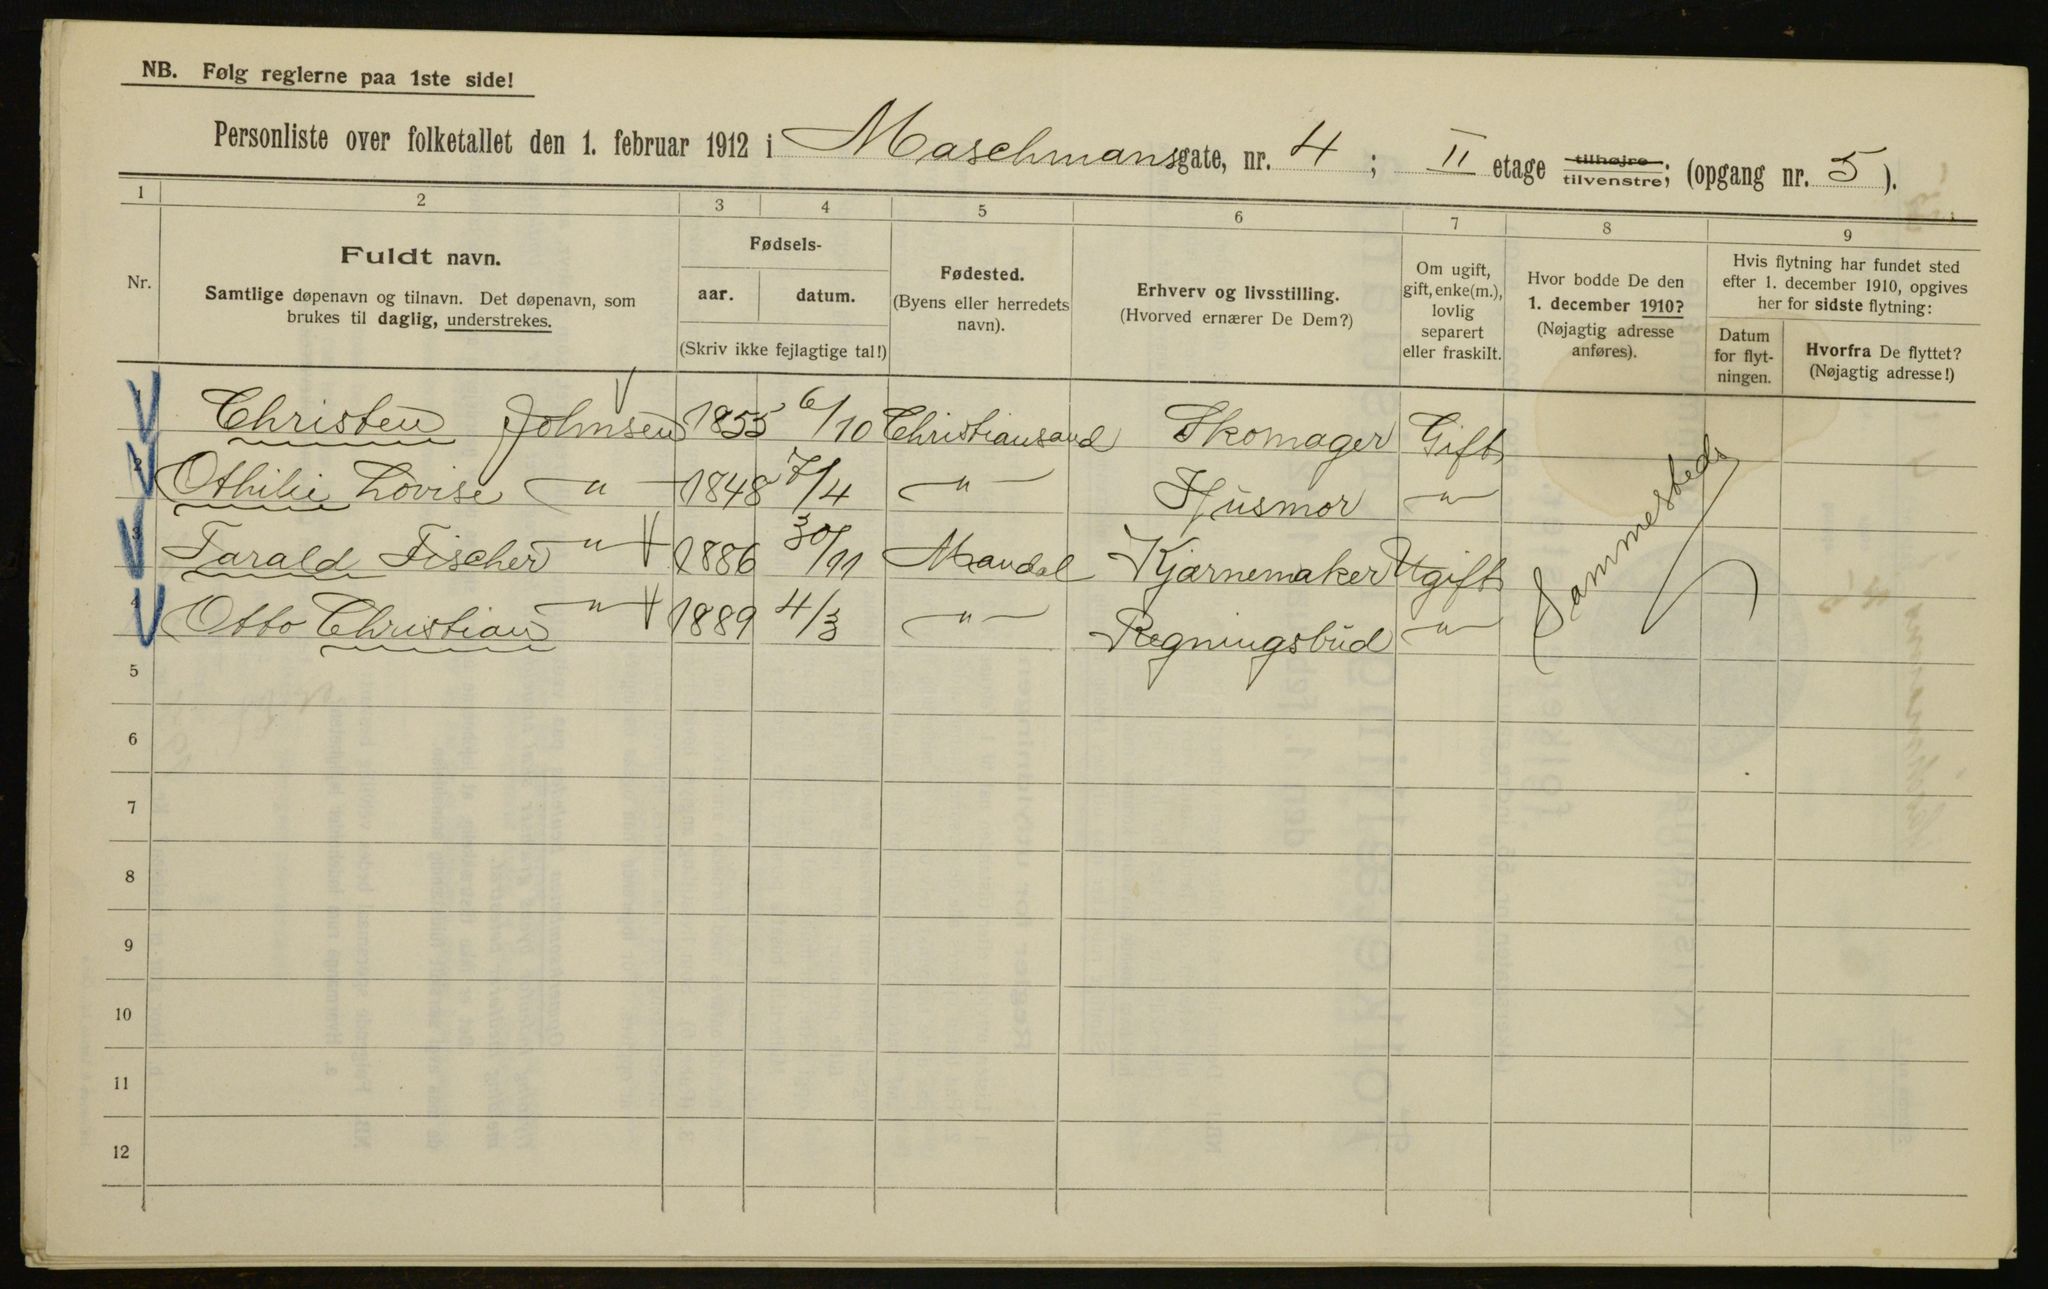 NB. Følg reglerne paa 1ste side!
Personliste over folketallet den 1. februar 1912 i Maschmansgate, nr. 4; II etage tilhøjre tilvenstre; (opgang nr. 5).
1 2 3 4 5 6 7 8 9
Nr.
Fuldt navn.
Samtlige døpenavn og tilnavn. Det døpenavn, som
brukes til daglig, understrekes.
Fødsels-
aar. datum.
(Skriv ikke fejlagtige tal!)
Fødested.
(Byens eller herredets
navn).
Erhverv og livsstilling.
(Hvorved ernærer De Dem?)
Om ugift,
gift, enke(m.),
lovlig
separert
eller fraskilt.
Hvor bodde De den
1. december 1910?
(Nøjagtig adresse
anføres).
Hvis flytning har fundet sted
efter 1. december 1910, opgives
her for sidste flytning:
Datum
for flyt-
ningen.
Hvorfra De flyttet?
(Nøjagtig adresse!)
1 Christen Johnsen 1855 6/10 Christiansand Skomager Gift
2 Othilie Lovise —"— 1848 7/4 —"— Husmor —"—
3 Tarald Fischer —"— 1886 30/11 Mandal Kjørnemaker Ugift
4 Otto Christian —"— 1889 4/3 —"— Regningsbud —"—
Sammesteds
5
6
7
8
9
10
11
12